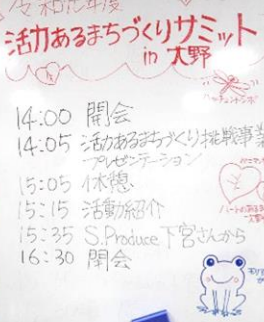 令和元年度
活力あるまちづくりサミット
in 大野
14:00 開会
14:05 活力あるまちづくり挑戦事業
プレゼンテーション
15:05 休憩
15:15 活動紹介
15:35 S.Produce 下宮さんから
16:30 閉会